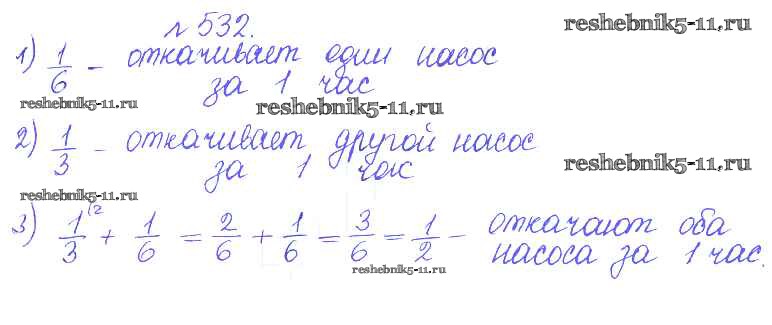 № 532.
reshebnik5-11.ru
1) 1/6 – откачивает один насос
за 1 час
reshebnik5-11.ru
reshebnik5-11.ru
2) 1/3 – откачивает другой насос
за 1 час
reshebnik5-11.ru
reshebnik5-11.ru
3) 1/3 (2 + 1/6 = 2/6 + 1/6 = 3/6 = 1/2 – откачают оба
насоса за 1 час.
reshebnik5-11.ru